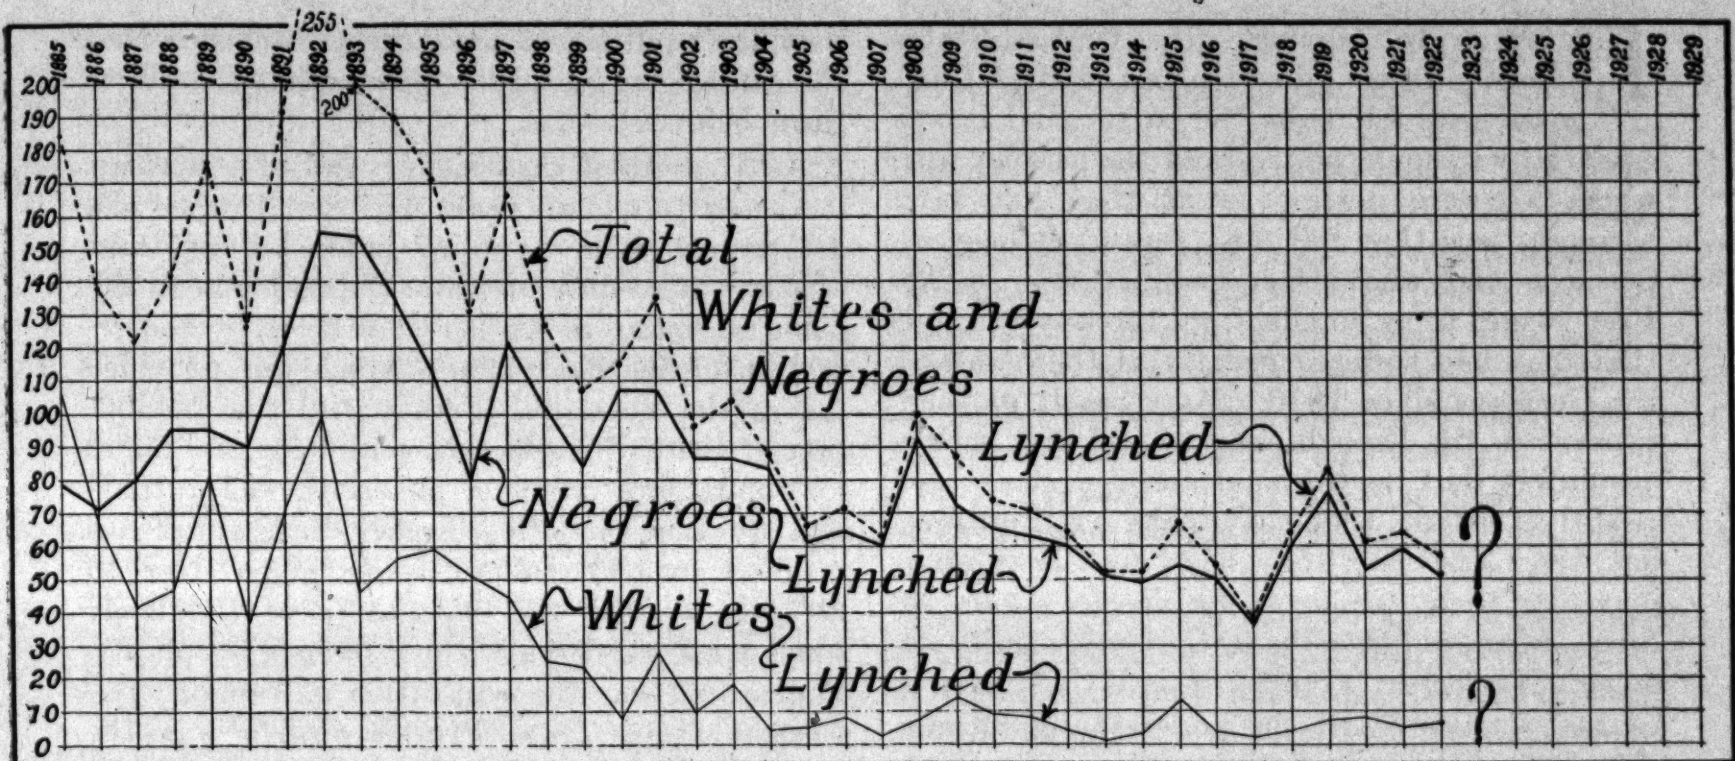 255
1885 1886 1887 1888 1889 1890 1891 1892 1893 1894 1895 1896 1897 1898 1899 1900 1901 1902 1903 1904 1905 1906 1907 1908 1909 1910 1911 1912 1913 1914 1915 1916 1917 1918 1919 1920 1921 1922 1923 1924 1925 1926 1927 1928 1929
200
200
190
180
170
160
150
140
130
120
110
100
90
80
70
60
50
40
30
20
10
0
Total
Whites and
Negroes
Lynched
Negroes
Lynched
?
Whites
Lynched
?